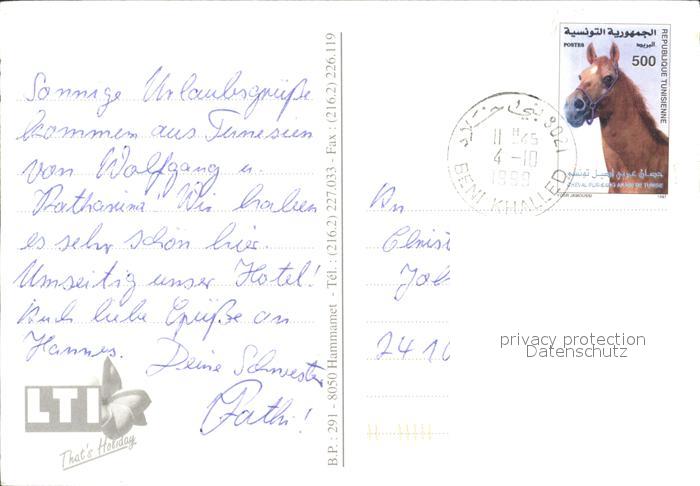 Sonnige Urlaubsgrüße
kommen aus Tunesien
von Wolfgang u.
Katharina. Wir haben
es sehr schön hier.
Umseitig unser Hotel!
Auch liebe Grüße an
Hannes. Deine Schwester
Kathi!
LTI
That's Holiday
B.P. : 291 - 8050 Hammamet - Tél. : (216.2) 227.033 - Fax : (216.2) 226.119
الجمهورية التونسية
POSTES البريد
500
REPUBLIQUE TUNISIENNE
حصان عربي أصيل تونسي
CHEVAL PUR-SANG ARABE DE TUNISIE
1997
9021
11 H 45
4 -10
1999
BENI KHALLED
An
privacy protection
Datenschutz